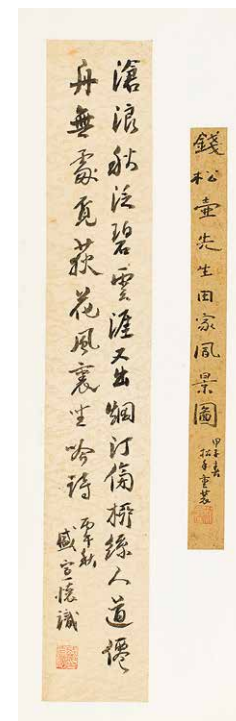 錢松壺先生田家風景圖
甲子春
重裝
滄浪秋泛碧雲涯又出烟汀絲人道僊
舟無處覓荻花風裏坐吟詩
丙午秋
盛宣懷識